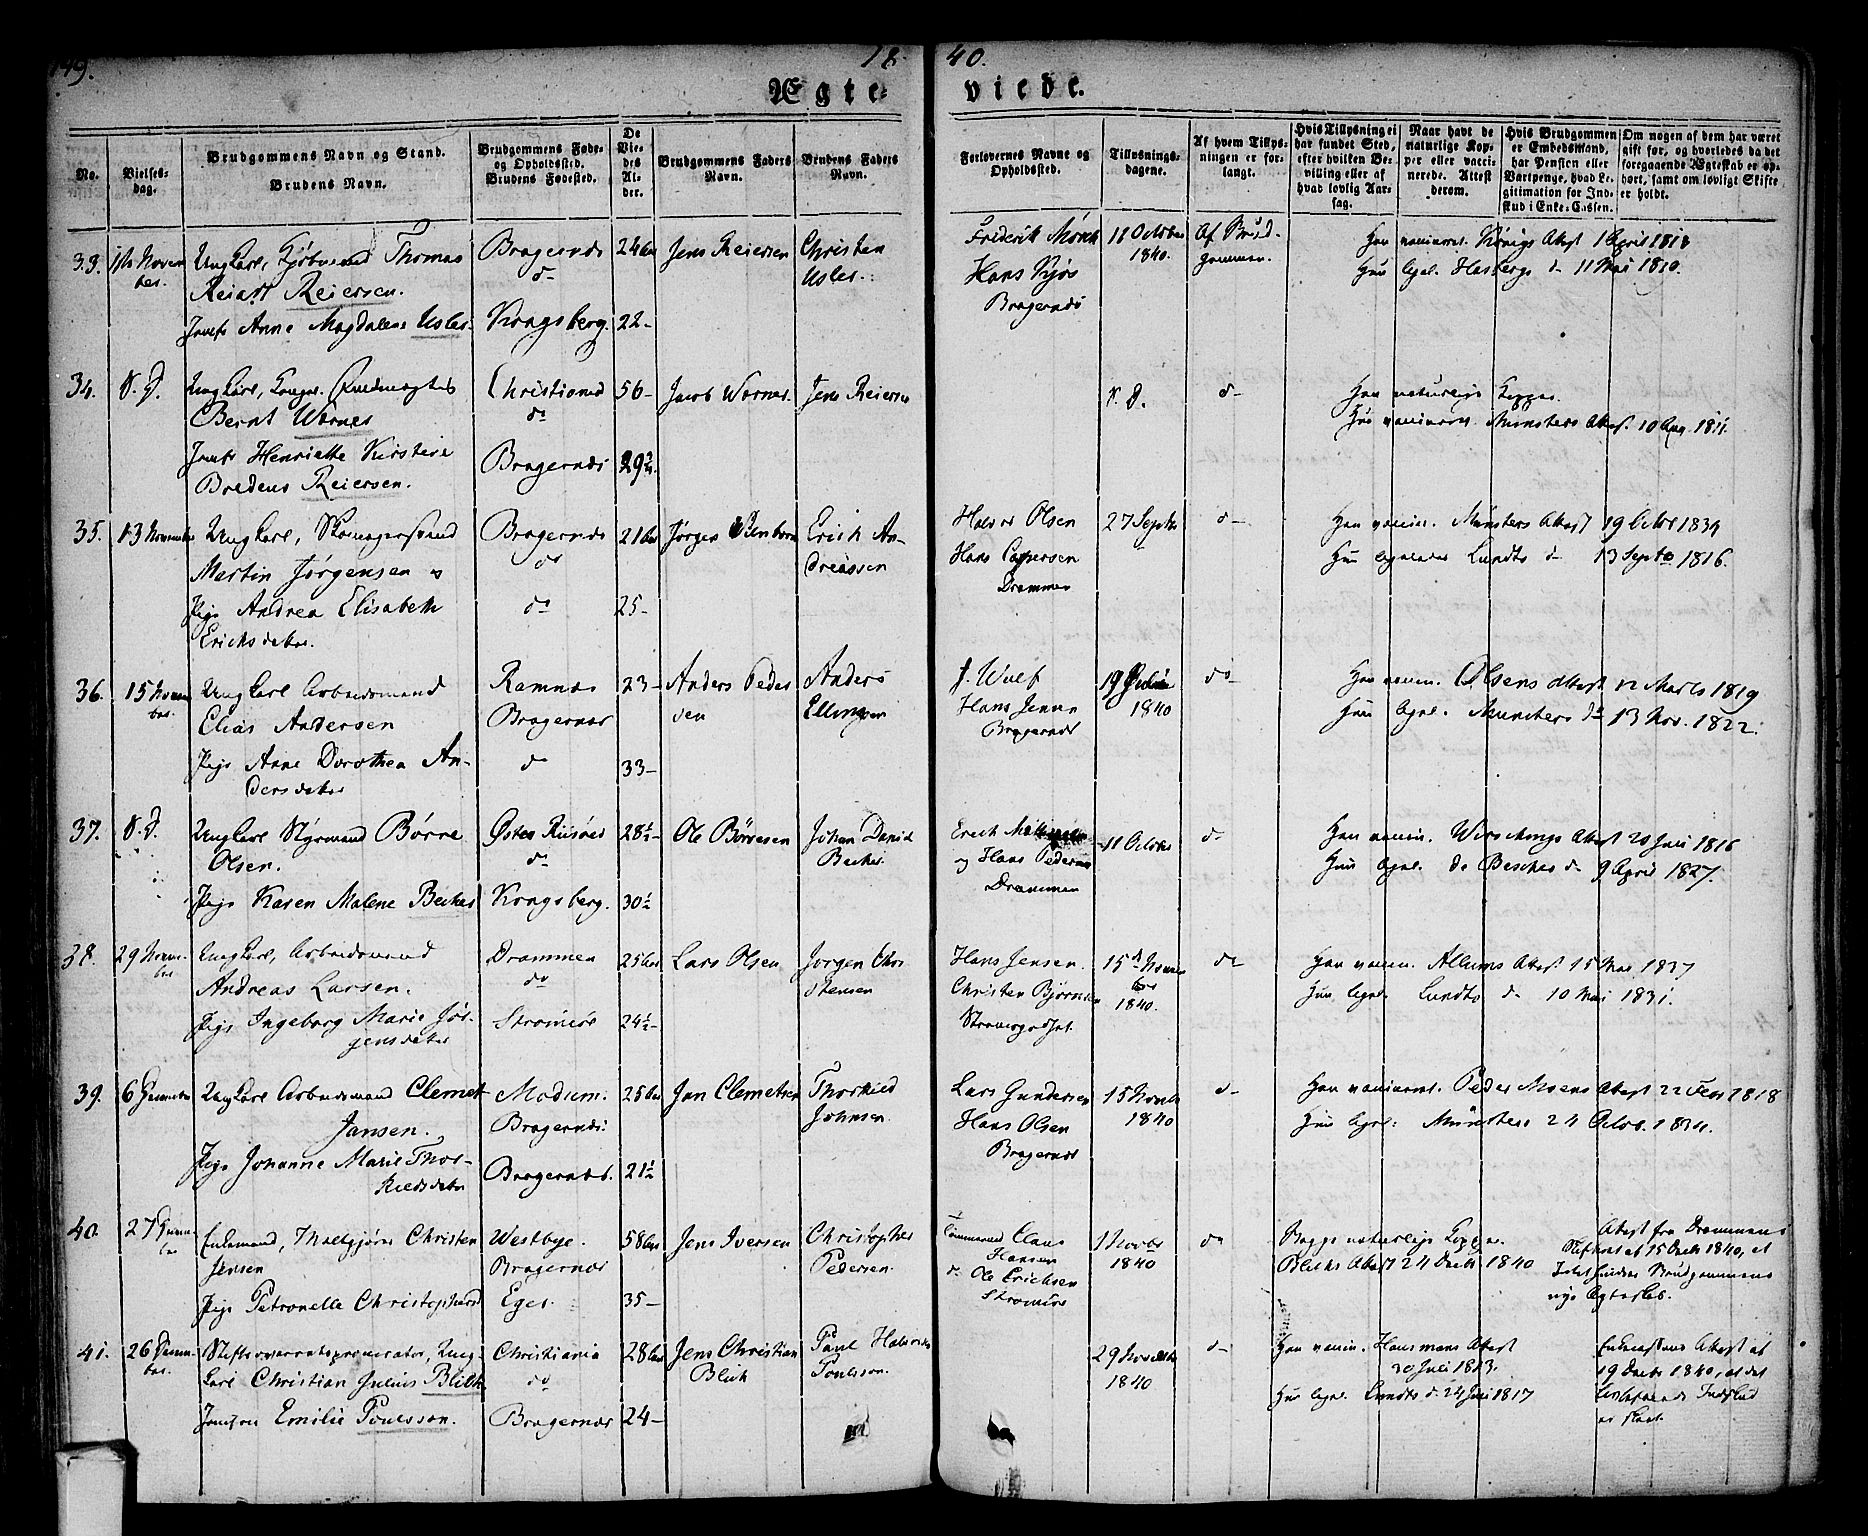 149.
18 40.
Ægte= viede.
No.
Vielses= dag.
Brudgommens Navn og Stand.
Brudens Navn.
Brudgommens Føde= og Opholdssted.
Brudens Fødested.
De Vie= des Al= der.
Brudgommens Faders Navn.
Brudens Faders Navn.
Forlovernes Navne og Opholdssted.
Tillysnings= dagene.
Af hvem Tillys= ningen er for= langt.
Hvis Tillysning ei har fundet Sted, efter hvilken Be= villing eller af hvad lovlig Aar= sag.
Naar havt de naturlige Kop= per eller vacci= nerede. Attest derom.
Hvis Brudgommen er Embedsmand, har Pension eller Vartpenge, hvad Le= gitimation for Ind= skud i Enke=Cassen.
Om nogen af dem har været gift før, og hvorledes da det foregaaende Ægteskab er op= hørt, samt om lovligt Skifte er holdt.
33. Ungkarl, Thomas
Reiersen.
Anne Magdalene Usler
Bragernæs
do
Kongsberg.
24
22-
Jens Reiersen
Christen
Usler
Frederik Monk
Hans
Bragernæs
11 October
1840.
Af Brud-
gommen.
Attest 1 April 1818
11 Mai 1820.
34. Ungkarl,
Bernt Wornes
Henriette Kirstine
Reiersen.
Christiania
do
Bragernæs
56-
29
Jacob Wornes.
Jens Reiersen
Han naturlige Kopper.
Münsters Attest 10 Aug. 1811.
35. 13 November
Ungkarl,
Martin Jørgensen
Pige Andrea Elisabeth
Ericksdatter.
Bragernæs
do
do
21
25-
Jørgen
Erich An-
dreassen
Halvor Olsen
Hans Caspersen
Drammen
27 Septbr
Han vaccin. Münsters Attest 19 Octbr 1839
Lundts do 13 Septbr 1816.
36. 15 Novem
ber.
Ungkarl Arbeidsmand
Elias Andersen
Pige Anne Dorothea An-
dersdatter
Ramnæs
Bragernæs
do
23-
33-
Anders Peder
sen
Anders
Ellingsen
J. Wulf
Hans Jensen
Bragernæs
19
1840
do
Han vaccin. Olsens Attest 12 Marts 1819
Hun Münsters do 13 Nov. 1822.
37. Ungkarl Styrmand Børre
Olsen.
Pige Karen Malene Becker
Øster Riisøer
do
Kongsberg.
28½-
30½
Ole Børresen
Johan David
Becker
Erick
og Hans Pedersen
Drammen
11 October
Han vaccin. Attest 20 Juni 1816
Hun 9 April 1827.
38. 29 Novem-
ber
Ungkarl, Arbeidsmand
Andreas Larsen.
Pige Ingeborg Marie Jør-
gensdatter
Drammen
do
Strømsøe
25
24½-
Lars Olsen
Jørgen Chri
stensen
Hans Jensen.
Christen Bjørnsen
Strømsgodset.
15d Novem
ber
1840.
do
Han vaccin. Allums Attest 15 Mai 1837
Hun Lundts do 10 Mai 1831.
39. 6 December
Ungkarl Arbeidsmand Clemet
Jansen.
Pige Johanne Marie Thor-
kildsdatter
Modum.
Bragernæs.
Bragernæs.
25
21½
Jan Clemetsen
Thorkild
Johnsen.
Lars Gundersen
Hans Olsen
Bragernæs
15 Novbr
1840
Han vaccineret. Peder Moens Attest 22 Febr 1818
Hun Münsters 24 Octbr. 1834.
40. 27 Decem-
ber
Enkemand, Christen
Jensen
Pige Petronelle Christophersd
Westbye.
Bragernæs
Eger.
58
35-
Jens Iversen
Christopher
Pedersen.
Claus
Hansen
Ole Erichsen
Strømsøe
1 Novbr
1840
do
Begge naturlige Kopper.
Blichs Attest 24 Decbr 1840
Attest fra Drammens
Skifteret af 15 Decbr 1840, at
Intet hindrer Brudgommens
nye Ægteskab.
41. 26 Decem-
ber.
Stiftsoverretsprocurator, Ung-
karl Christian Julius Blich
Jomfru Emilie Poulsson.
Christiania
do
Bragernæs
28
24-
Jens Christian
Blich
Paul Halvor
Poulsson.
29 Novbr
1840
Han vaccin. Hansmans Attest
30 Juli 1813.
Hun Lundts d. 24 Juni 1817
Enkecassens Attest af
19 Decbr 1840, at det
Indskud
er skeet.